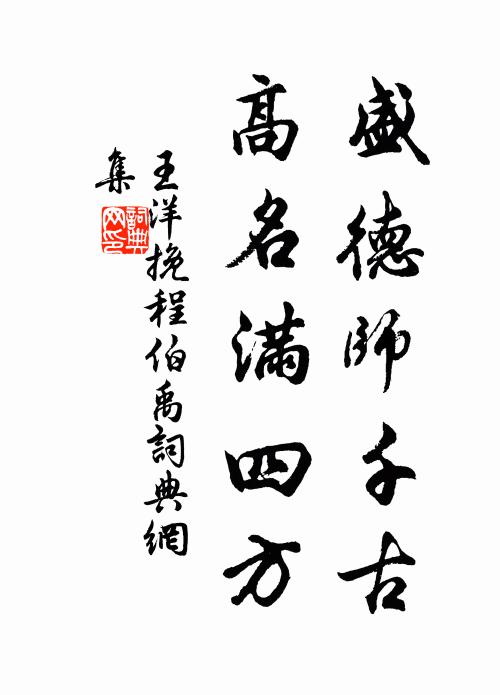 盛德師千古
高名滿四方
王洋挽程伯禹詞典網
集
詞典
网印